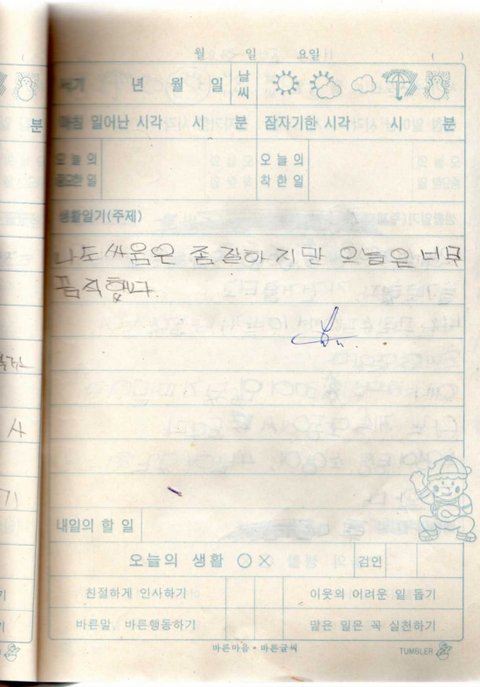 월 일 요일 ( )
년 월 일 날씨
아침 일어난 시각 시 분 잠자기한 시각 시 분
오늘의 중요한 일 오늘의 착한 일
생활일기(주제)
나도 싸움은 좀 잘하지만 오늘은 너무
끔찍했다.
내일의 할 일
오늘의 생활 ○ × 검인
친절하게 인사하기 이웃의 어려운 일 돕기
바른말, 바른행동하기 맡은 일은 꼭 실천하기
바른마음·바른글씨 TUMBLER
분
사
기